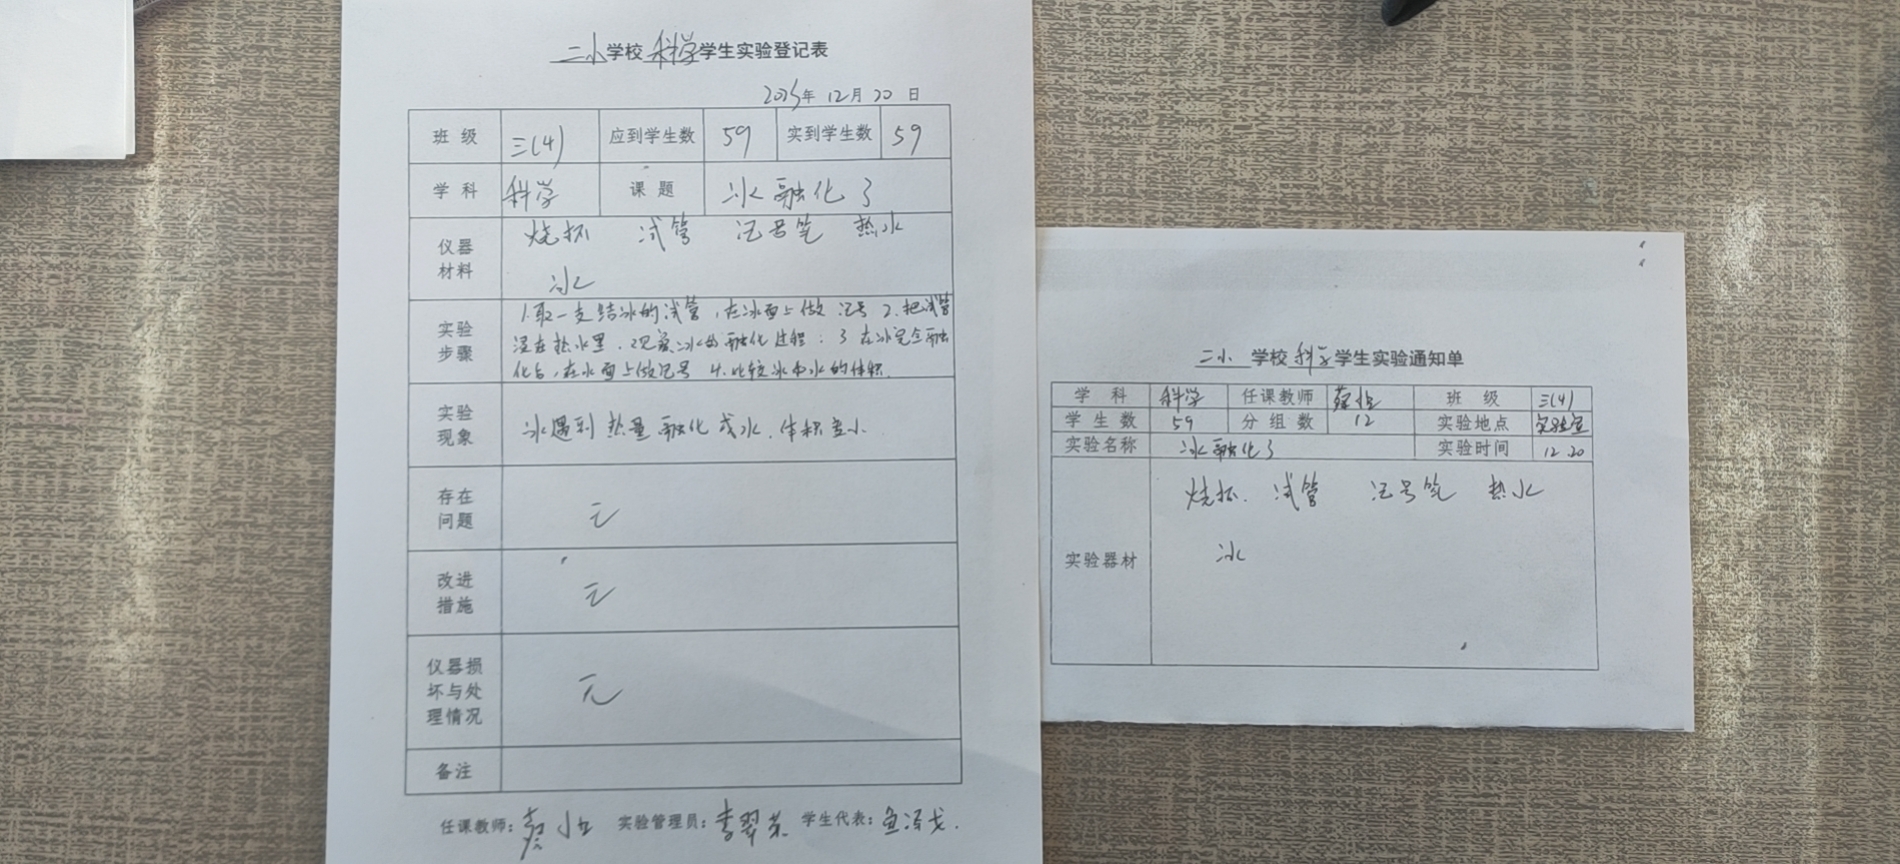 二小学校科学学生实验登记表
2025年12月20日
班级 三(4) 应到学生数 59 实到学生数 59
学科 科学 课题 冰融化了
仪器材料 烧杯 试管 记号笔 热水
冰
实验步骤 1.取一支结冰的试管,在冰面上做记号 2.把试管
浸在热水里,观察冰的融化过程.3在冰完全融
化后,在水面上做记号 4.比较冰和水的体积.
实验现象 冰遇到热量融化成水.体积变小
存在问题 无
改进措施 无
仪器损坏与处理情况 无
备注
任课教师: 实验管理员:李翠 学生代表:
二小学校科学学生实验通知单
学科 科学 任课教师 班级 三(4)
学生数 59 分组数 12 实验地点 实验室
实验名称 冰融化了 实验时间 12.20
实验器材 烧杯. 试管 记号笔 热水
冰